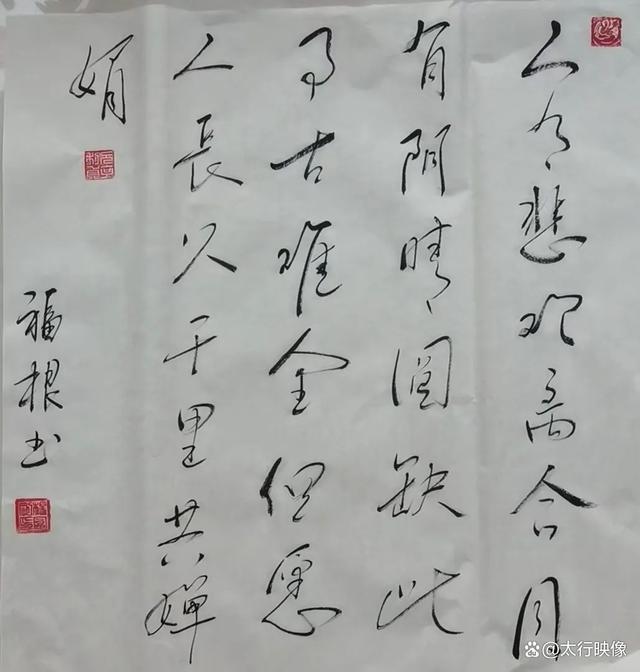 人有悲欢离合月
有阴晴圆缺此
事古难全但愿
人長久千里共婵
娟
福根书
@太行映像